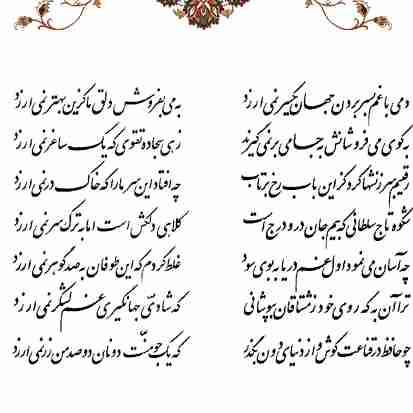 دمی با غم بسر بردن جهان یکسر نمی ارزد به می بفروش دلق ما کزین بهتر نمی ارزد
به کوی می فروشانش به جامی بر نمی گیرند زهی سجاده تقوی که یک ساغر نمی ارزد
رقیبم سرزنشها کرد کز این باب رخ برتاب چه افتاد این سر ما را که خاک در نمی ارزد
شکوه تاج سلطانی که بیم جان درو درج است کلاهی دلکش است اما به ترک سر نمی ارزد
چه آسان می نمود اول غم دریا به بوی سود غلط کردم که این طوفان به صد گوهر نمی ارزد
ترا آن به که روی خود ز مشتاقان بپوشانی که شادی جهانگیری غم لشگر نمی ارزد
چو حافظ در قناعت کوش و از دنیای دون بگذر که یک جو منت دونان دو صد من زر نمی ارزد